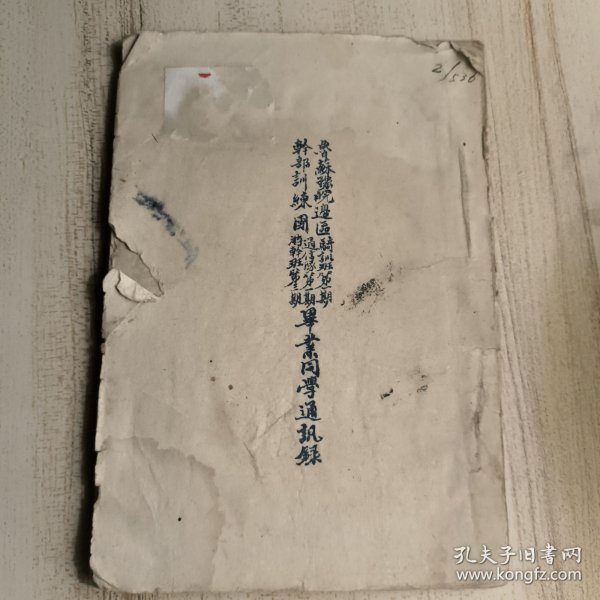 2/536
魯蘇豫皖邊區
幹部訓練團
騎訓班第一期
通信隊第一期
將幹班第三期
畢業同學通訊錄
孔夫子旧书网
www.kongfz.com